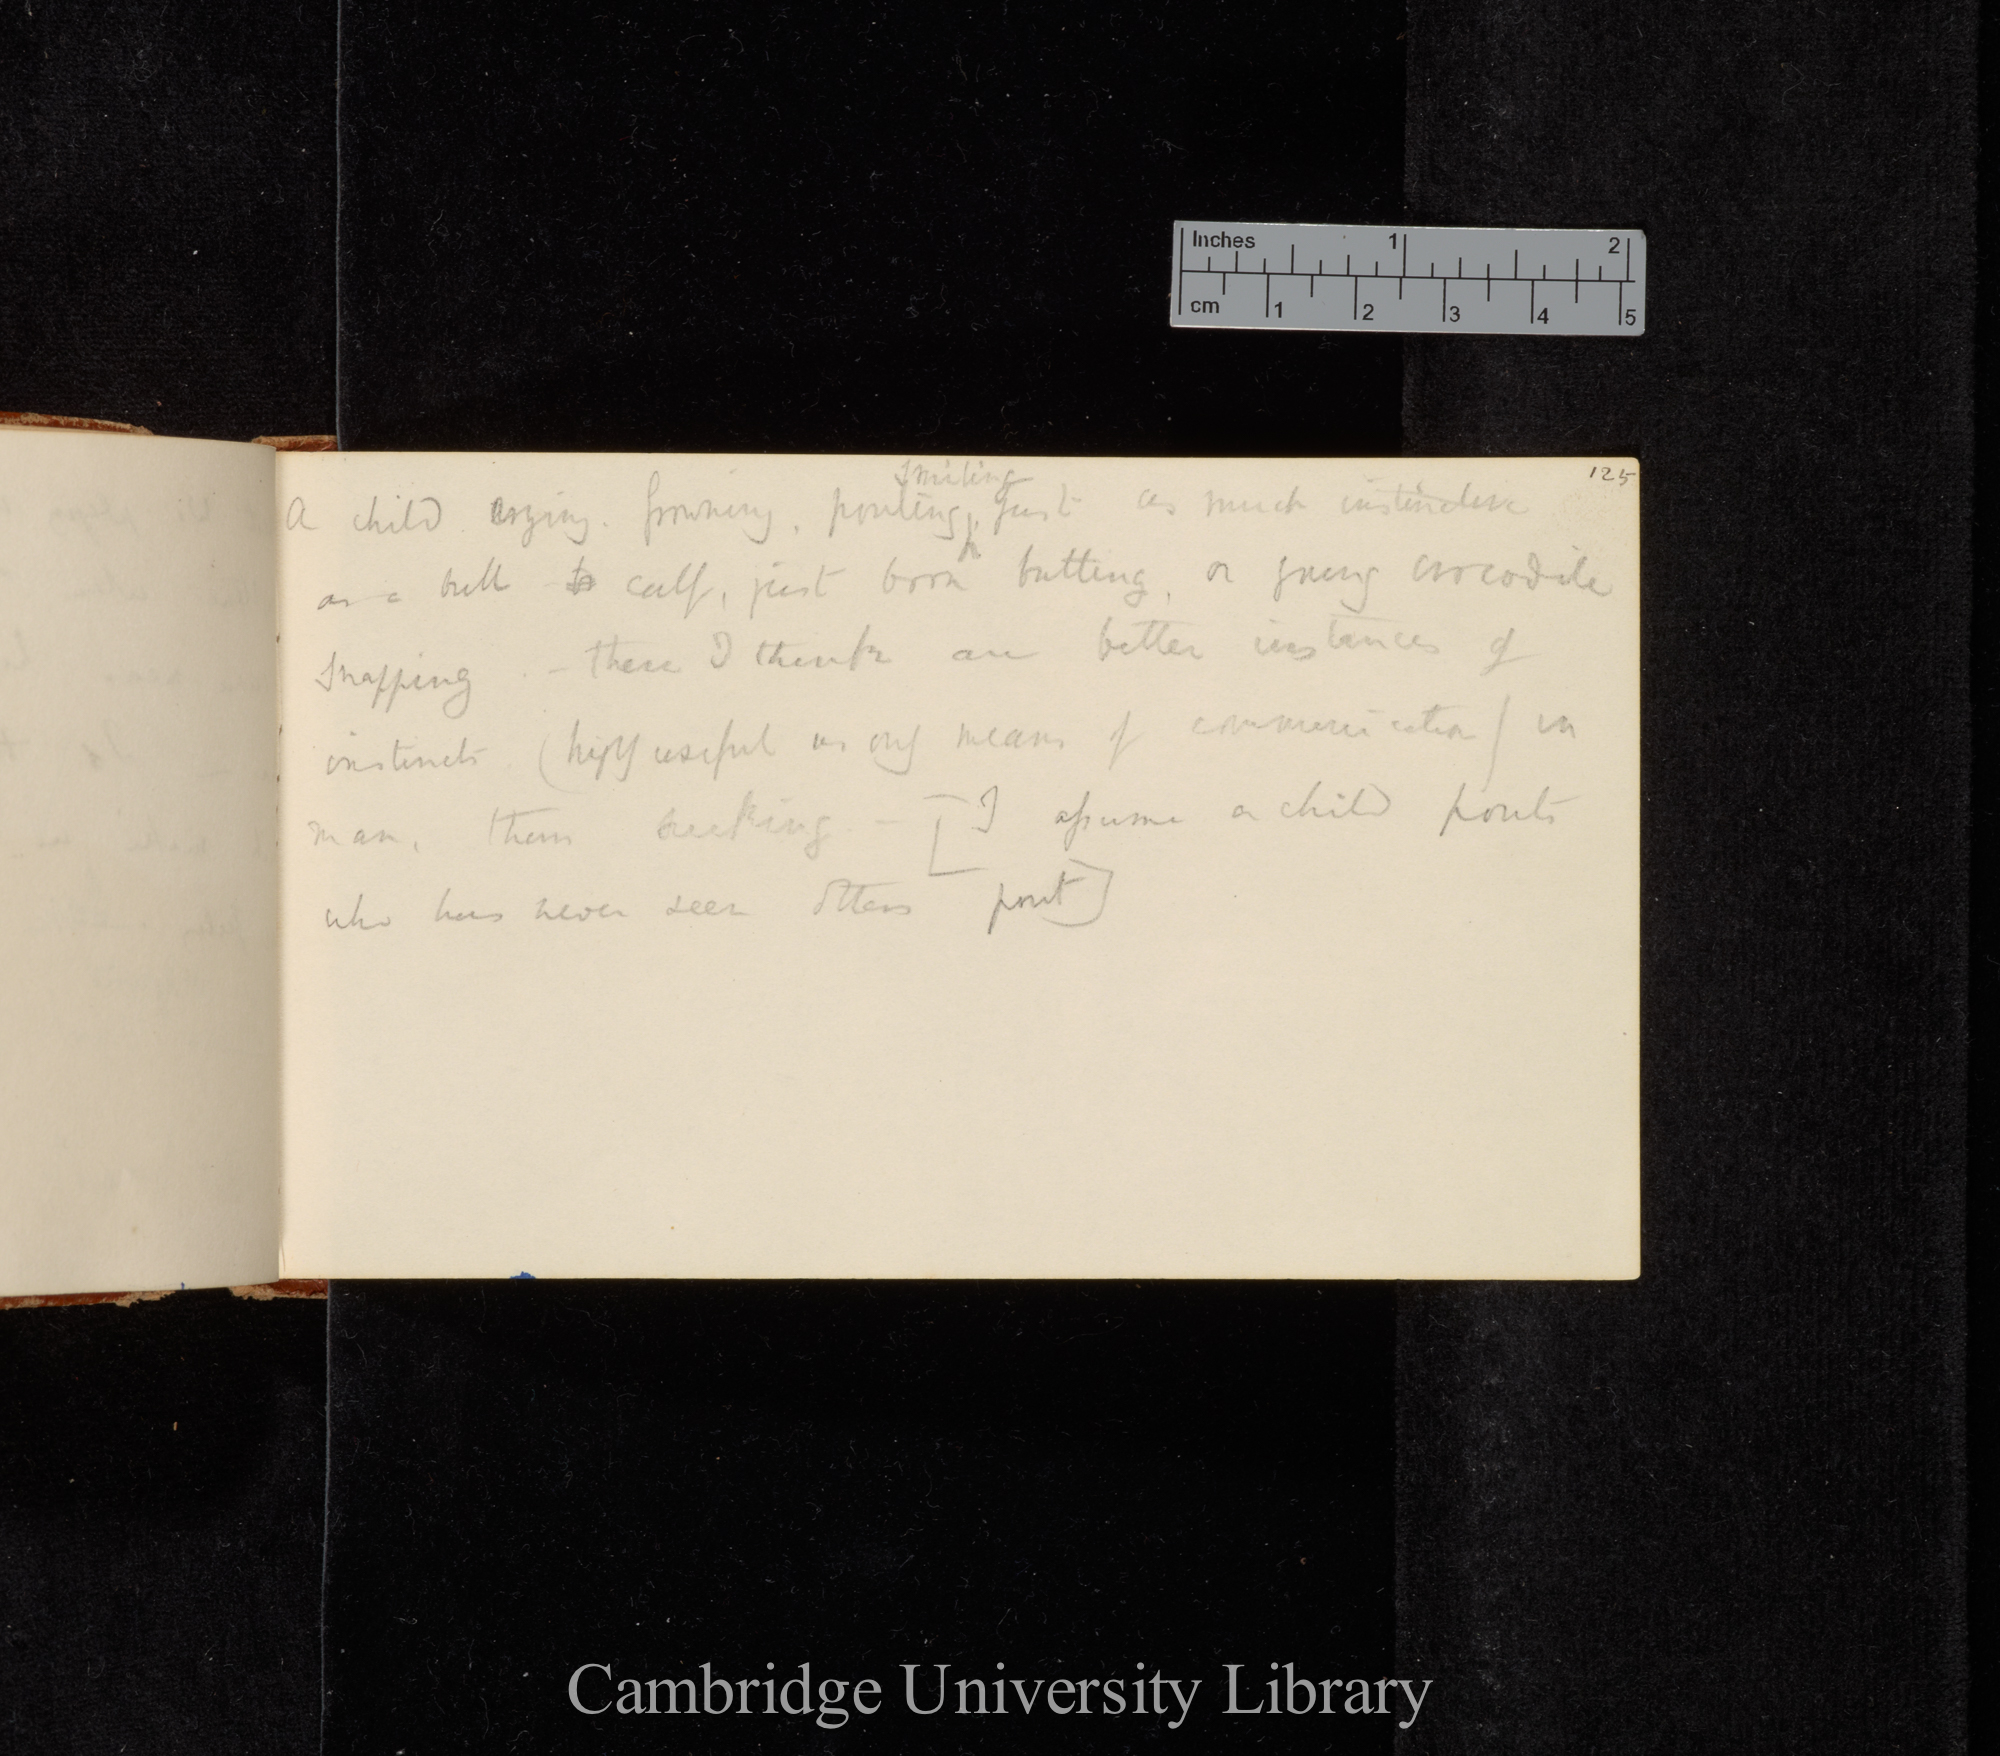 Inches 1 2
cm 1 2 3 4 5
125
smiling
A child crying. frowning, pouting, just as much instinctive
as a bull calf, just born butting, or young crocodile
snapping. — these I think are better instances of
instincts (highly useful as only means of communication) in
man, than sucking — [I assume a child pouts
who has never seen others pout]
Cambridge University Library